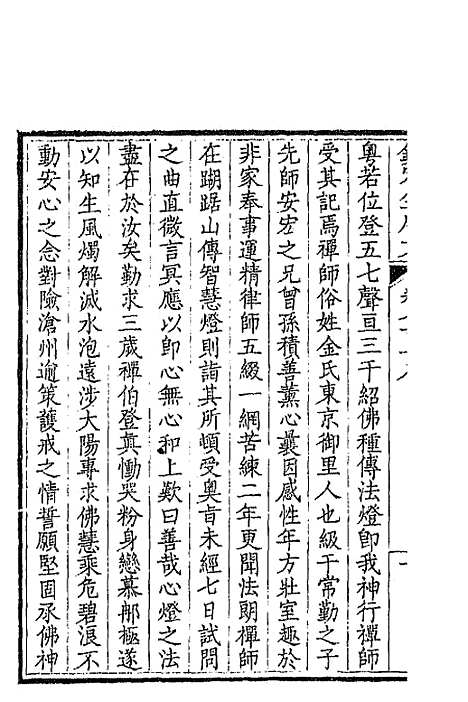 粤若位登五七聲亘三千紹佛種傳法燈即我神行禪師
受其記焉禪師俗姓金氏東京御里人也級干常勤之子
先師安宏之兄曾孫積善薰心曩因感性年方壯室趣於
非家奉事運精律師五綴一網苦練二年更聞法朗禪師
在瑚踞山傳智慧燈則詣其所頓受奧旨未經七日試問
之曲直微言冥應以即心無心和上歎曰善哉心燈之法
盡在於汝矣勤求三歲禪伯登真慟哭粉身戀慕那極遂
以知生風燭解滅水泡遠涉大陽專求佛慧乘危碧浪不
動安心之念對險滄州逾策護戒之情誓願堅固承佛神